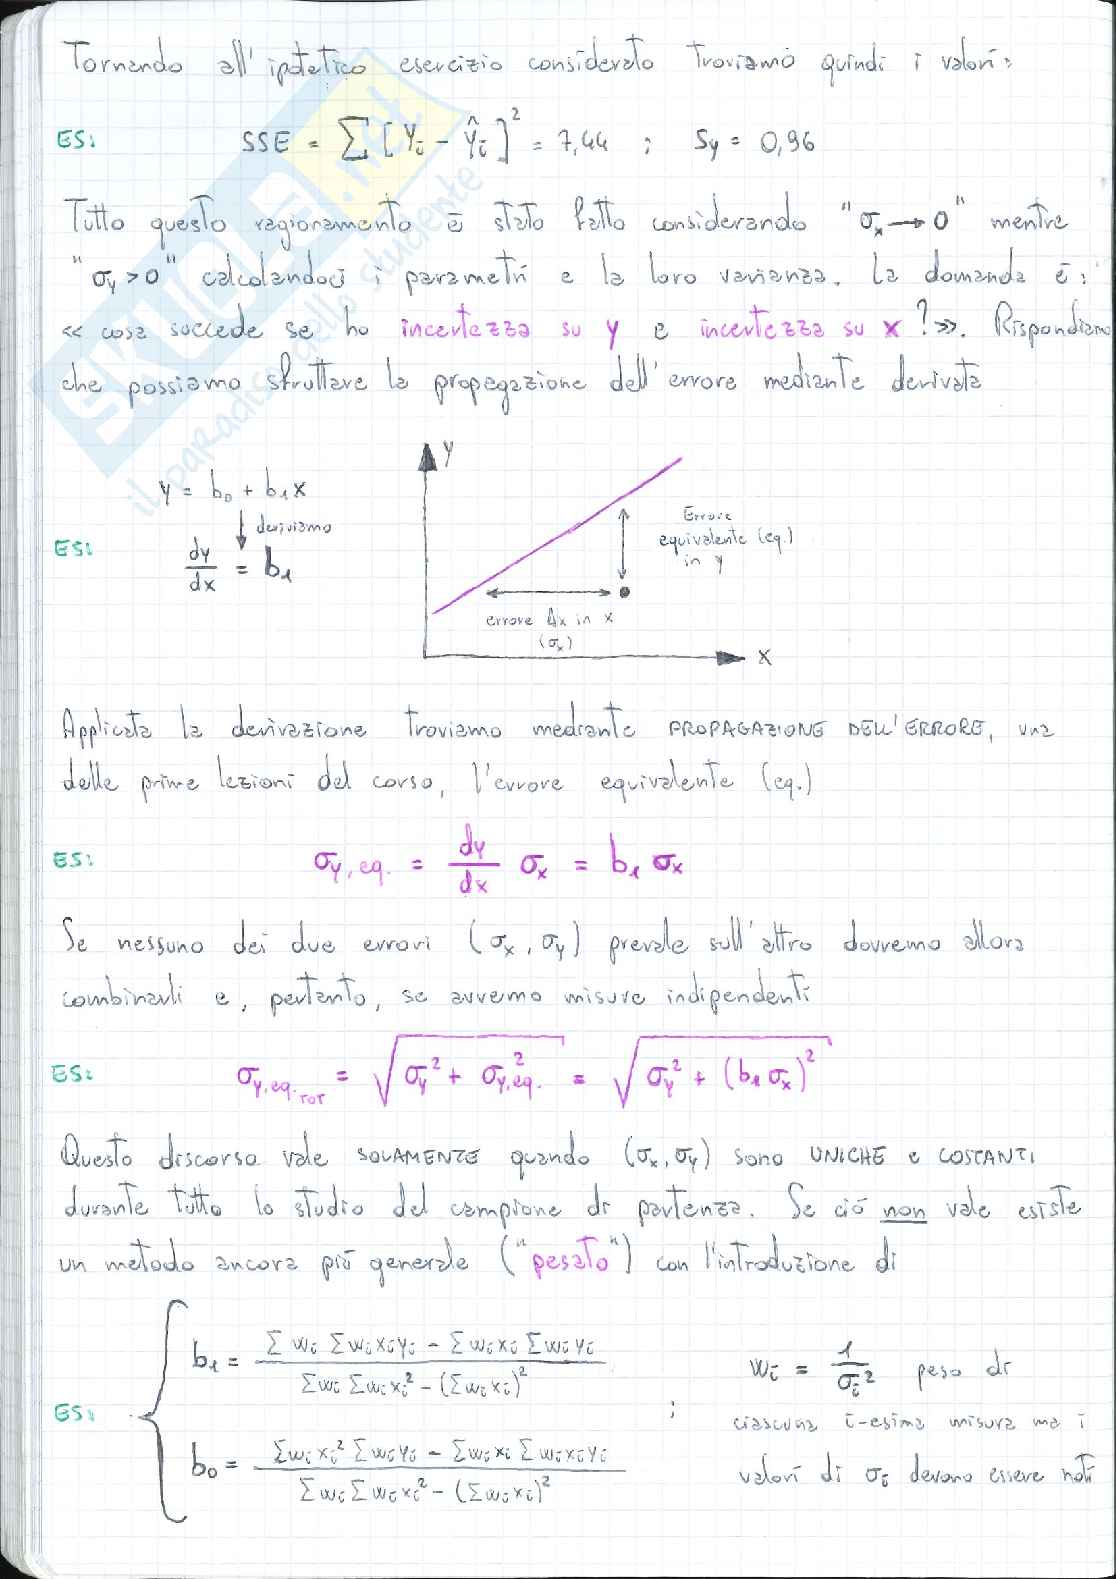 Tornando all'ipotetico esercizio considerato troviamo quindi i valori:
ES: SSE = ∑ [Yi - Ŷi]² = 7,44 ; Sy = 0,96
Tutto questo ragionamento è stato fatto considerando "σx → 0" mentre
"σy > 0" calcolandoci i parametri e la loro varianza. La domanda è:
« cosa succede se ho incertezza su y e incertezza su x ?». Rispondiamo
che possiamo sfruttare la propagazione dell'errore mediante derivata
y = b0 + b1x
deriviamo
ES: dy/dx = b1
y
Errore
equivalente (eq.)
in y
errore Δx in x
(σx)
x
Applicata la derivazione troviamo mediante PROPAGAZIONE DELL'ERRORE, una
delle prime lezioni del corso, l'errore equivalente (eq.)
ES: σy,eq. = dy/dx σx = b1 σx
Se nessuno dei due errori (σx, σy) prevale sull'altro dovremo allora
combinarli e, pertanto, se avremo misure indipendenti
ES: σy,eq. TOT = √(σy² + σy,eq.²) = √(σy² + (b1 σx)²)
Questo discorso vale SOLAMENTE quando (σx, σy) sono UNICHE e COSTANTI
durante tutto lo studio del campione di partenza. Se ciò non vale esiste
un metodo ancora più generale ("pesato") con l'introduzione di
b1 = (∑wi ∑wixiyi - ∑wixi ∑wiyi) / (∑wi ∑wixi² - (∑wixi)²)
wi = 1/σi² peso di
ES: ; ciascuna i-esima misura ma i
b0 = (∑wixi² ∑wiyi - ∑wixi ∑wixiyi) / (∑wi ∑wixi² - (∑wixi)²)
valori di σi devono essere noti
SKUOLA.net
il paradiso dello studente